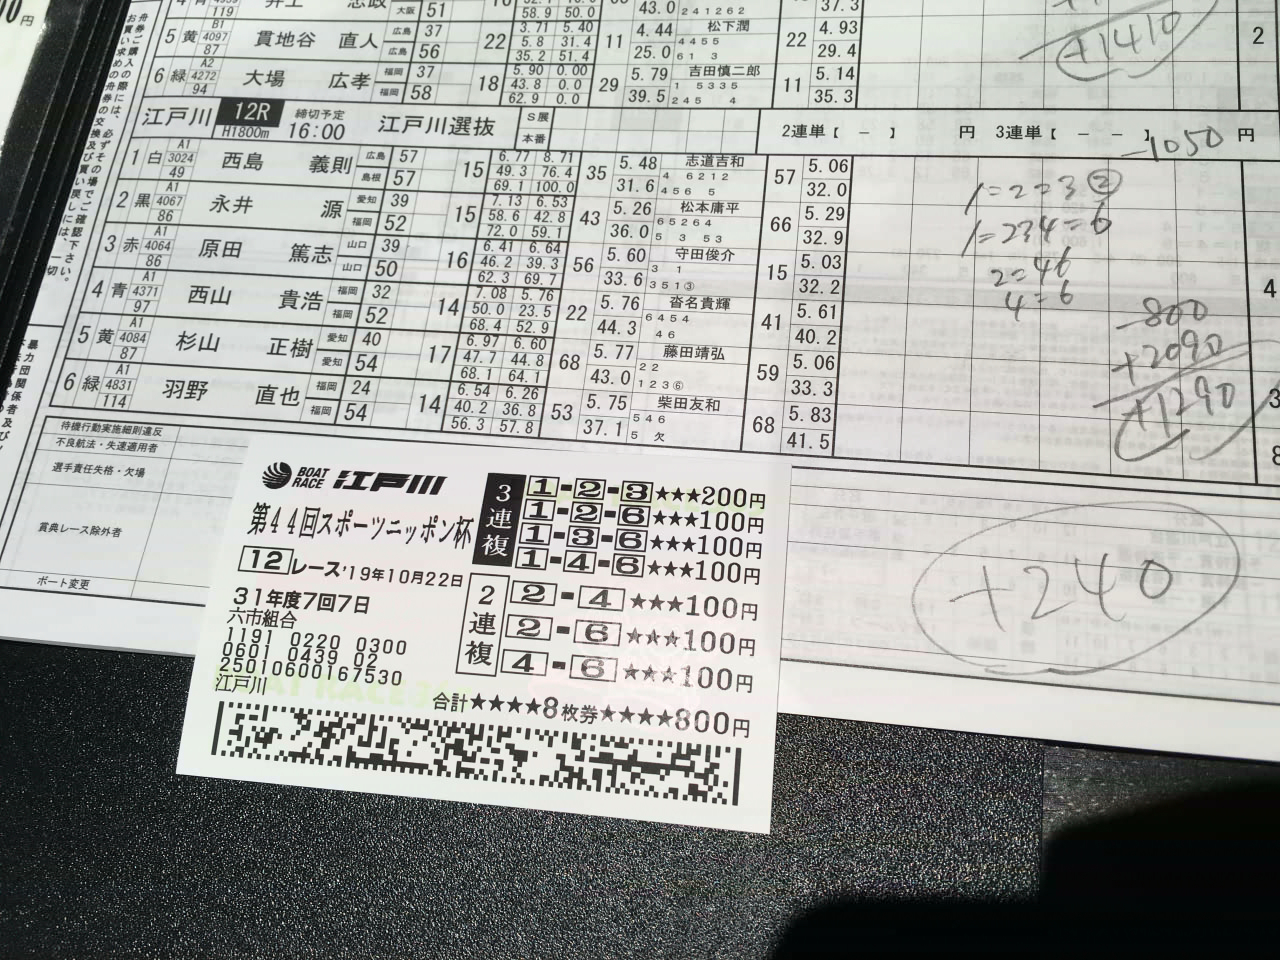 5 黄 B1 4097 87 貫地谷 直人 広島 37 広島 56 22 3.71 5.40 5.8 31.4 35.2 51.4 11 4.44 25.0 松下潤 4455 61 3 22 4.93 29.4
+1410
6 緑 A2 4272 94 大場 広孝 福岡 37 福岡 58 18 5.90 0.00 43.8 0.0 62.9 0.0 29 5.79 39.5 吉田慎二郎 1 5335 245 4 11 5.14 35.3
江戸川 12R H1800m 締切予定 16:00 江戸川選抜 S展 本番 2連単【 - 】 円 3連単【 - - 】 円
-1050
1 白 A1 3024 49 西島 義則 広島 57 島根 57 15 6.77 8.71 49.3 76.4 69.1 100.0 35 5.48 31.6 志道吉和 4 6212 456 5 57 5.06 32.0
2 黒 A1 4067 86 永井 源 愛知 39 福岡 52 15 7.13 6.53 58.6 42.8 72.0 59.1 43 5.26 36.0 松本庸平 65264 5 3 53 66 5.29 32.9
3 赤 A1 4064 86 原田 篤志 山口 39 山口 50 16 6.41 6.64 46.2 39.3 62.3 69.7 56 5.60 33.6 守田俊介 3 1 351③ 15 5.03 32.2
4 青 A1 4371 97 西山 貴浩 福岡 32 福岡 52 14 7.08 5.76 50.0 23.5 68.4 52.9 22 5.76 44.3 沓名貴輝 6454 46 41 5.61 40.2
5 黄 A1 4084 87 杉山 正樹 愛知 40 愛知 54 17 6.97 6.60 47.7 44.8 68.1 64.1 68 5.77 43.0 藤田靖弘 22 123⑥ 59 5.06 33.3
6 緑 A1 4831 114 羽野 直也 福岡 24 福岡 54 14 6.54 6.26 40.2 36.8 56.3 57.8 53 5.75 37.1 柴田友和 546 5 欠 68 5.83 41.5
1=2=3 ②
1=234=6
2=46
4=6
-800
+2090
+1290
待機行動実施細則違反
不良航法・失速適用者
選手責任失格・欠場
賞典レース除外者
ボート変更
+240
BOAT RACE 江戸川
第44回スポーツニッポン杯
12レース '19年10月22日
31年度7回7日
六市組合
1191 0220 0300
0601 0439 02
25010600167530
江戸川
3連複
1-2-3★★★200円
1-2-6★★★100円
1-3-6★★★100円
1-4-6★★★100円
2連複
2-4★★★100円
2-6★★★100円
4-6★★★100円
合計★★★★8枚券★★★★800円